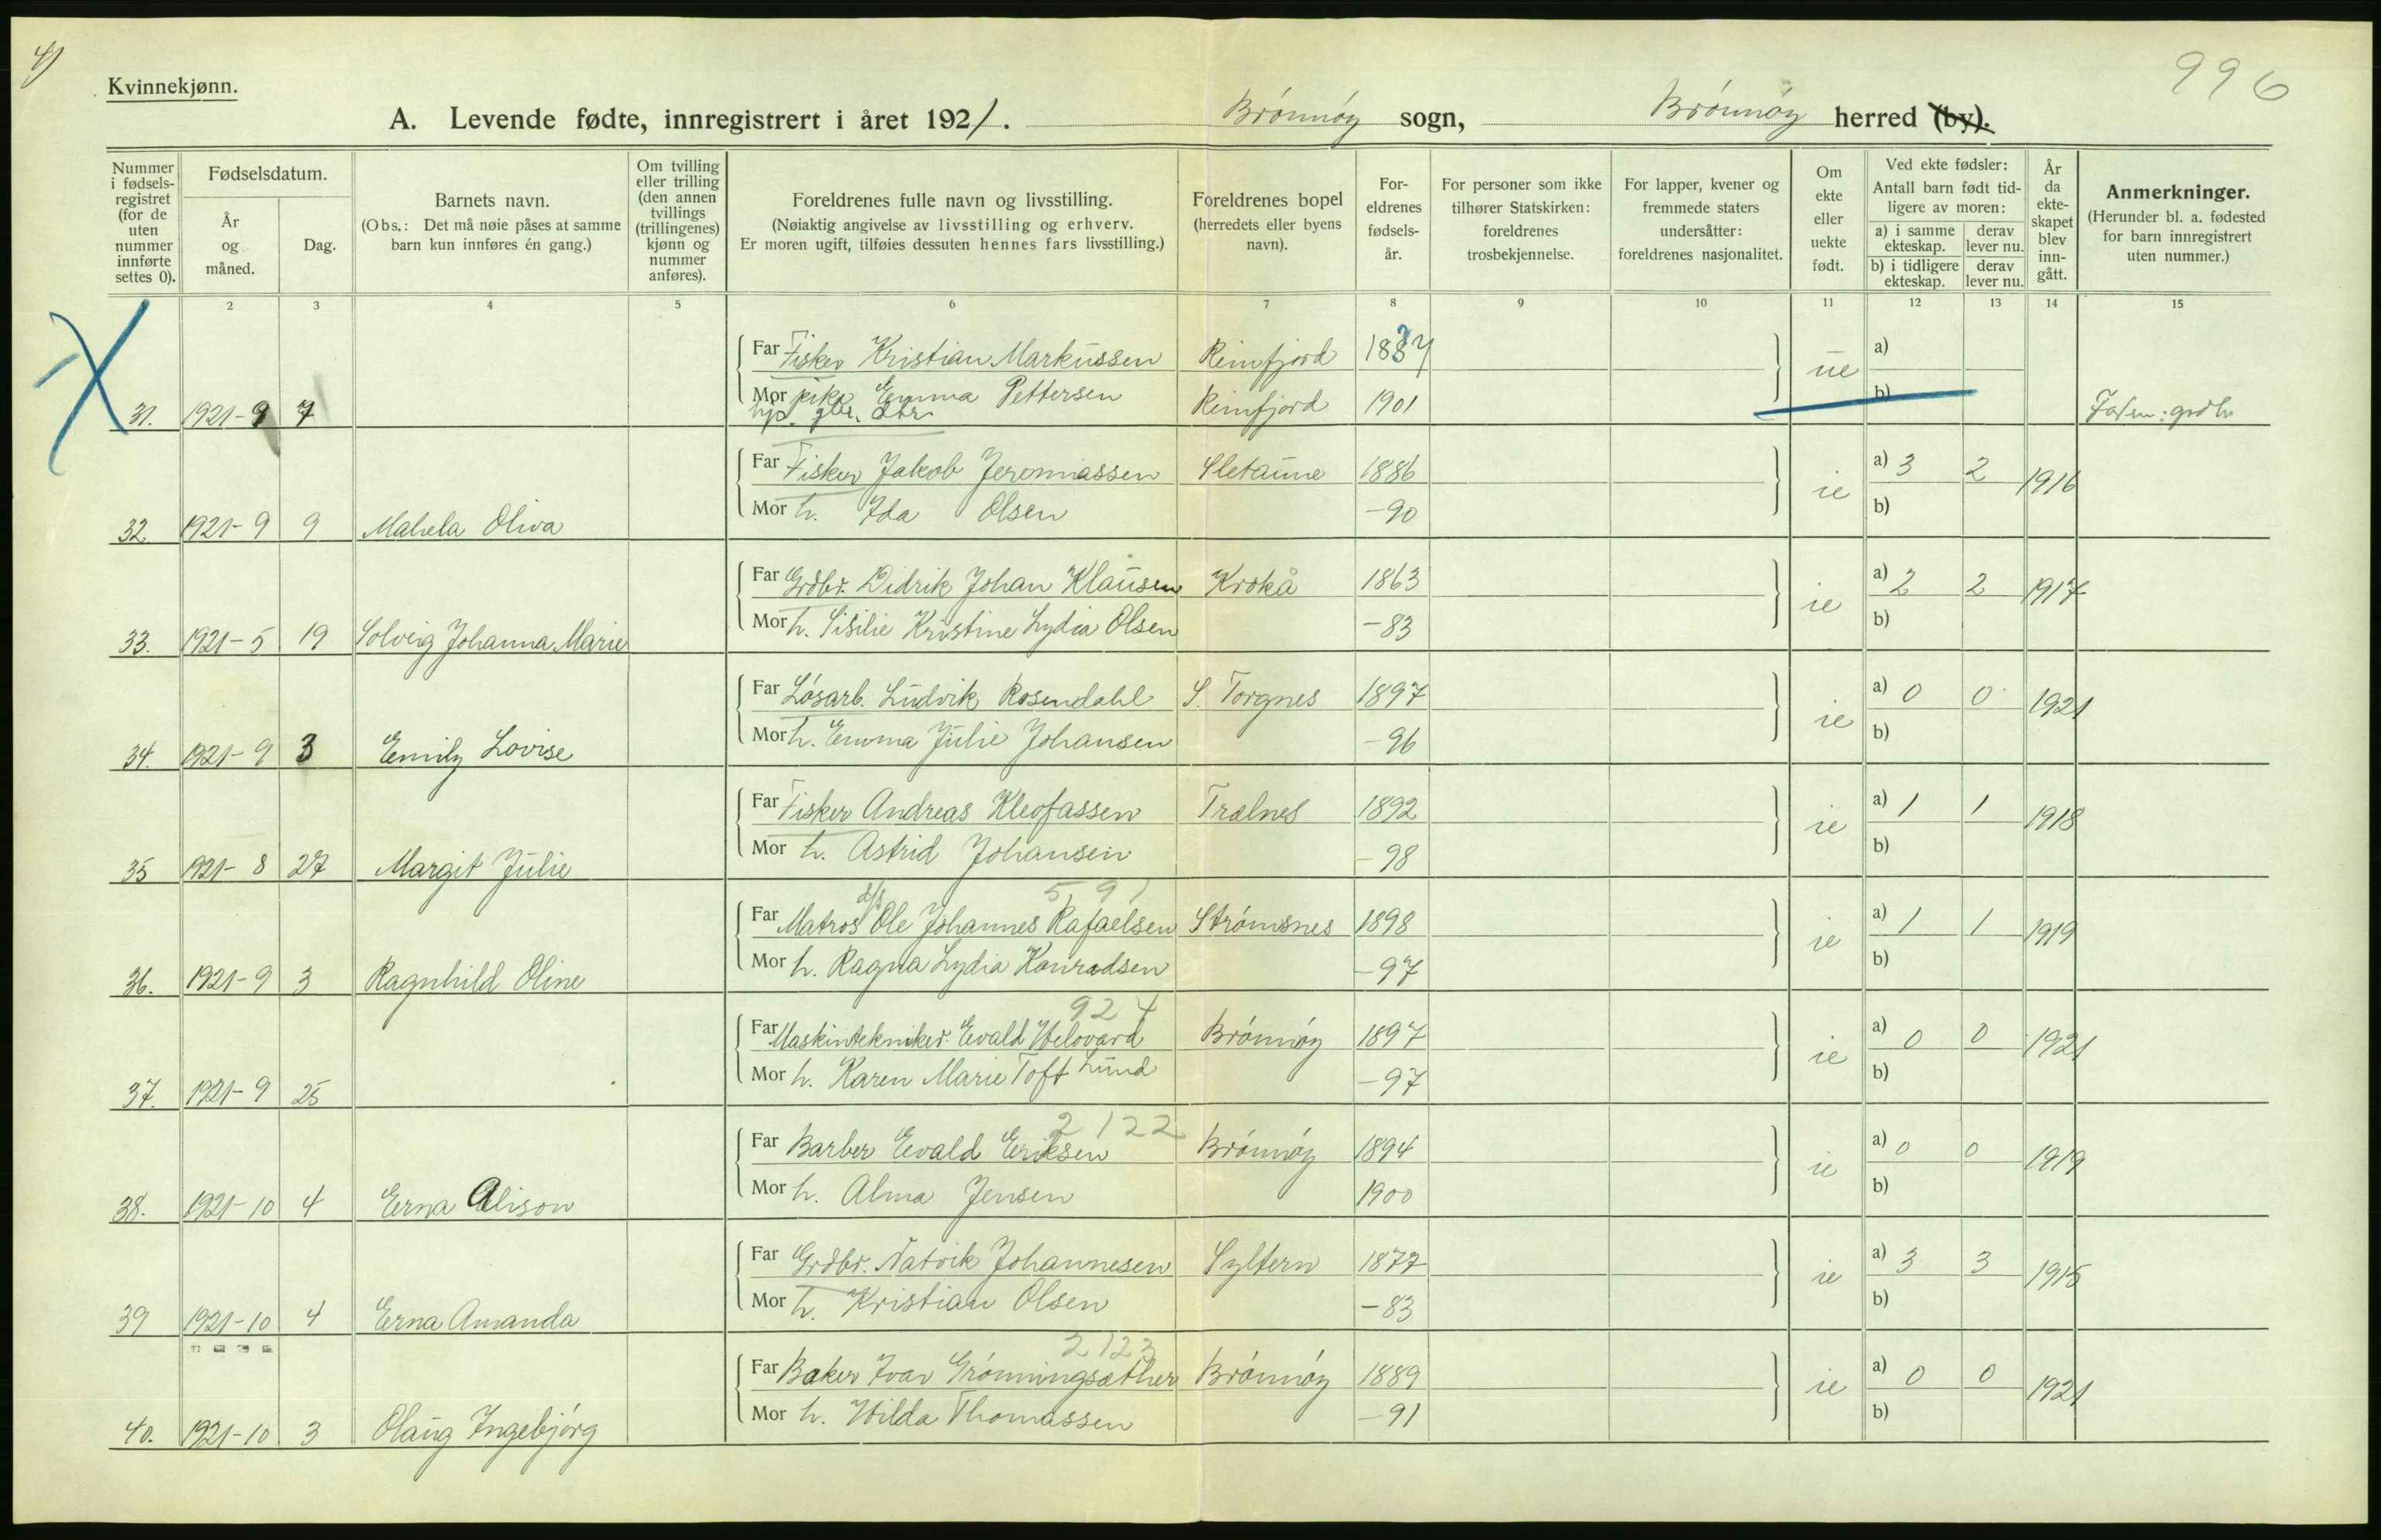 4)
996
Kvinnekjønn.
A. Levende fødte, innregistrert i året 1921. Brønnøy sogn, Brønnøy herred (by).
Nummer i fødsels-registret (for de uten nummer innførte settes 0).
Fødselsdatum.
År og måned.
Dag.
Barnets navn.
(Obs.: Det må nøie påses at samme barn kun innføres én gang.)
Om tvilling eller trilling (den annen tvillings (trillingenes) kjønn og nummer anføres).
Foreldrenes fulle navn og livsstilling.
(Nøiaktig angivelse av livsstilling og erhverv. Er moren ugift, tilføies dessuten hennes fars livsstilling.)
Foreldrenes bopel (herredets eller byens navn).
For-eldrenes fødsels-år.
For personer som ikke tilhører Statskirken: foreldrenes trosbekjennelse.
For lapper, kvener og fremmede staters undersåtter: foreldrenes nasjonalitet.
Om ekte eller uekte født.
Ved ekte fødsler:
Antall barn født tid-ligere av moren:
a) i samme ekteskap. derav lever nu.
b) i tidligere ekteskap. derav lever nu.
År da ekte-skapet blev inn-gått.
Anmerkninger.
(Herunder bl. a. fødested for barn innregistrert uten nummer.)
2 3 4 5 6 7 8 9 10 11 12 13 14 15
Far Fisker Kristian Markussen Reinfjord 1887 ue a)
Mor pike Emma Pettersen Reinfjord 1901 b)
31. 1921-9 7
Far Fisker Jakob Jeremiassen Sletaune 1886 ie a) 3 2 1916
Mor h. Ida Olsen -90 b)
32. 1921-9 9 Mahela Oliva
Far Grdbr. Didrik Johan Klausen Krokå 1863 ie a) 2 2 1917
Mor h. Sisilie Kristine Lydia Olsen -83 b)
33. 1921-5 19 Solveig Johanna Marie
Far Løsarb. Ludvik Rosendahl S. Torgnes 1897 ie a) 0 0 1921
Mor h. Emma Julie Johansen -96 b)
34. 1921-9 3 Emily Lovise
Far Fisker Andreas Kleofassen Trælnes 1892 ie a) 1 1 1918
Mor h. Astrid Johansen -98 b)
35 1921-8 27 Margit Julie
591
Far Matros d/s Ole Johannes Rafaelsen Strømsnes 1898 ie a) 1 1 1919
Mor h. Ragna Lydia Konradsen -97 b)
36. 1921-9 3 Ragnhild Oline
924
Far Maskintekniker Evald Helovard Brønnøy 1897 ie a) 0 0 1921
Mor h. Karen Marie Toft Lund -97 b)
37. 1921-9 25
2122
Far Barber Evald Eriksen Brønnøy 1894 ie a) 0 0 1919
Mor h. Alma Jensen 1900 b)
38. 1921-10 4 Erna Alison
Far Grdbr. Natvik Johannesen Syltern 1877 ie a) 3 3 1915
Mor h. Kristian Olsen -83 b)
39 1921-10 4 Erna Amanda
2123
Far Baker Ivar Grønningsæther Brønnøy 1889 ie a) 0 0 1921
Mor h. Hilda Thomassen -91 b)
40. 1921-10 3 Olaug Ingebjørg